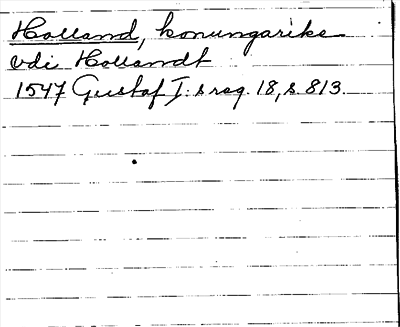 Holland, konungarike
vdi Hollandt
1547 Gustaf I:s reg. 18, s. 813